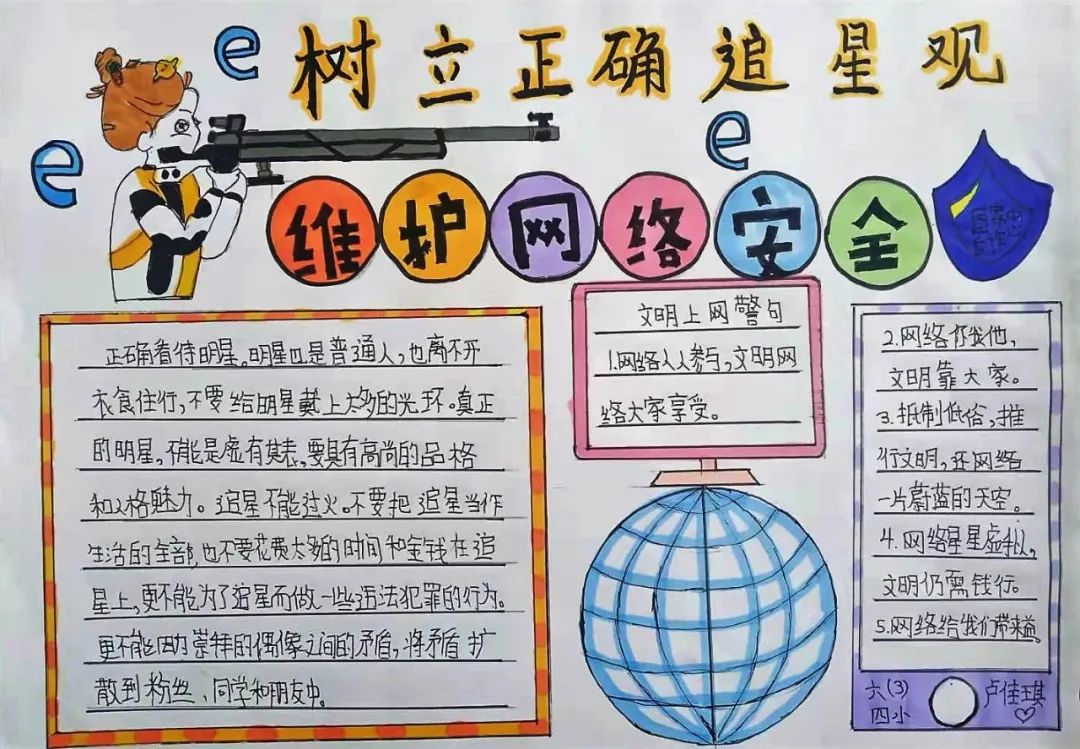 树立正确追星观
e
e
e
维护网络安全
正确看待明星。明星也是普通人,也离不开
衣食住行,不要给明星戴上太多的光环。真正
的明星,不能是虚有其表,要具有高尚的品格
和人格魅力。追星不能过火。不要把追星当作
生活的全部,也不要花费太多的时间和金钱在追
星上,更不能为了追星而做一些违法犯罪的行为。
更不能因为崇拜的偶像之间的矛盾,将矛盾扩
散到粉丝、同学和朋友中。
文明上网警句
1.网络人人参与,文明网
络大家享受。
2.网络你我他,
文明靠大家。
3.抵制低俗,推
行文明,还网络
一片蔚蓝的天空。
4.网络星星虚拟,
文明仍需钱行。
5.网络给我们带来益
六(3)
四小
卢佳琪